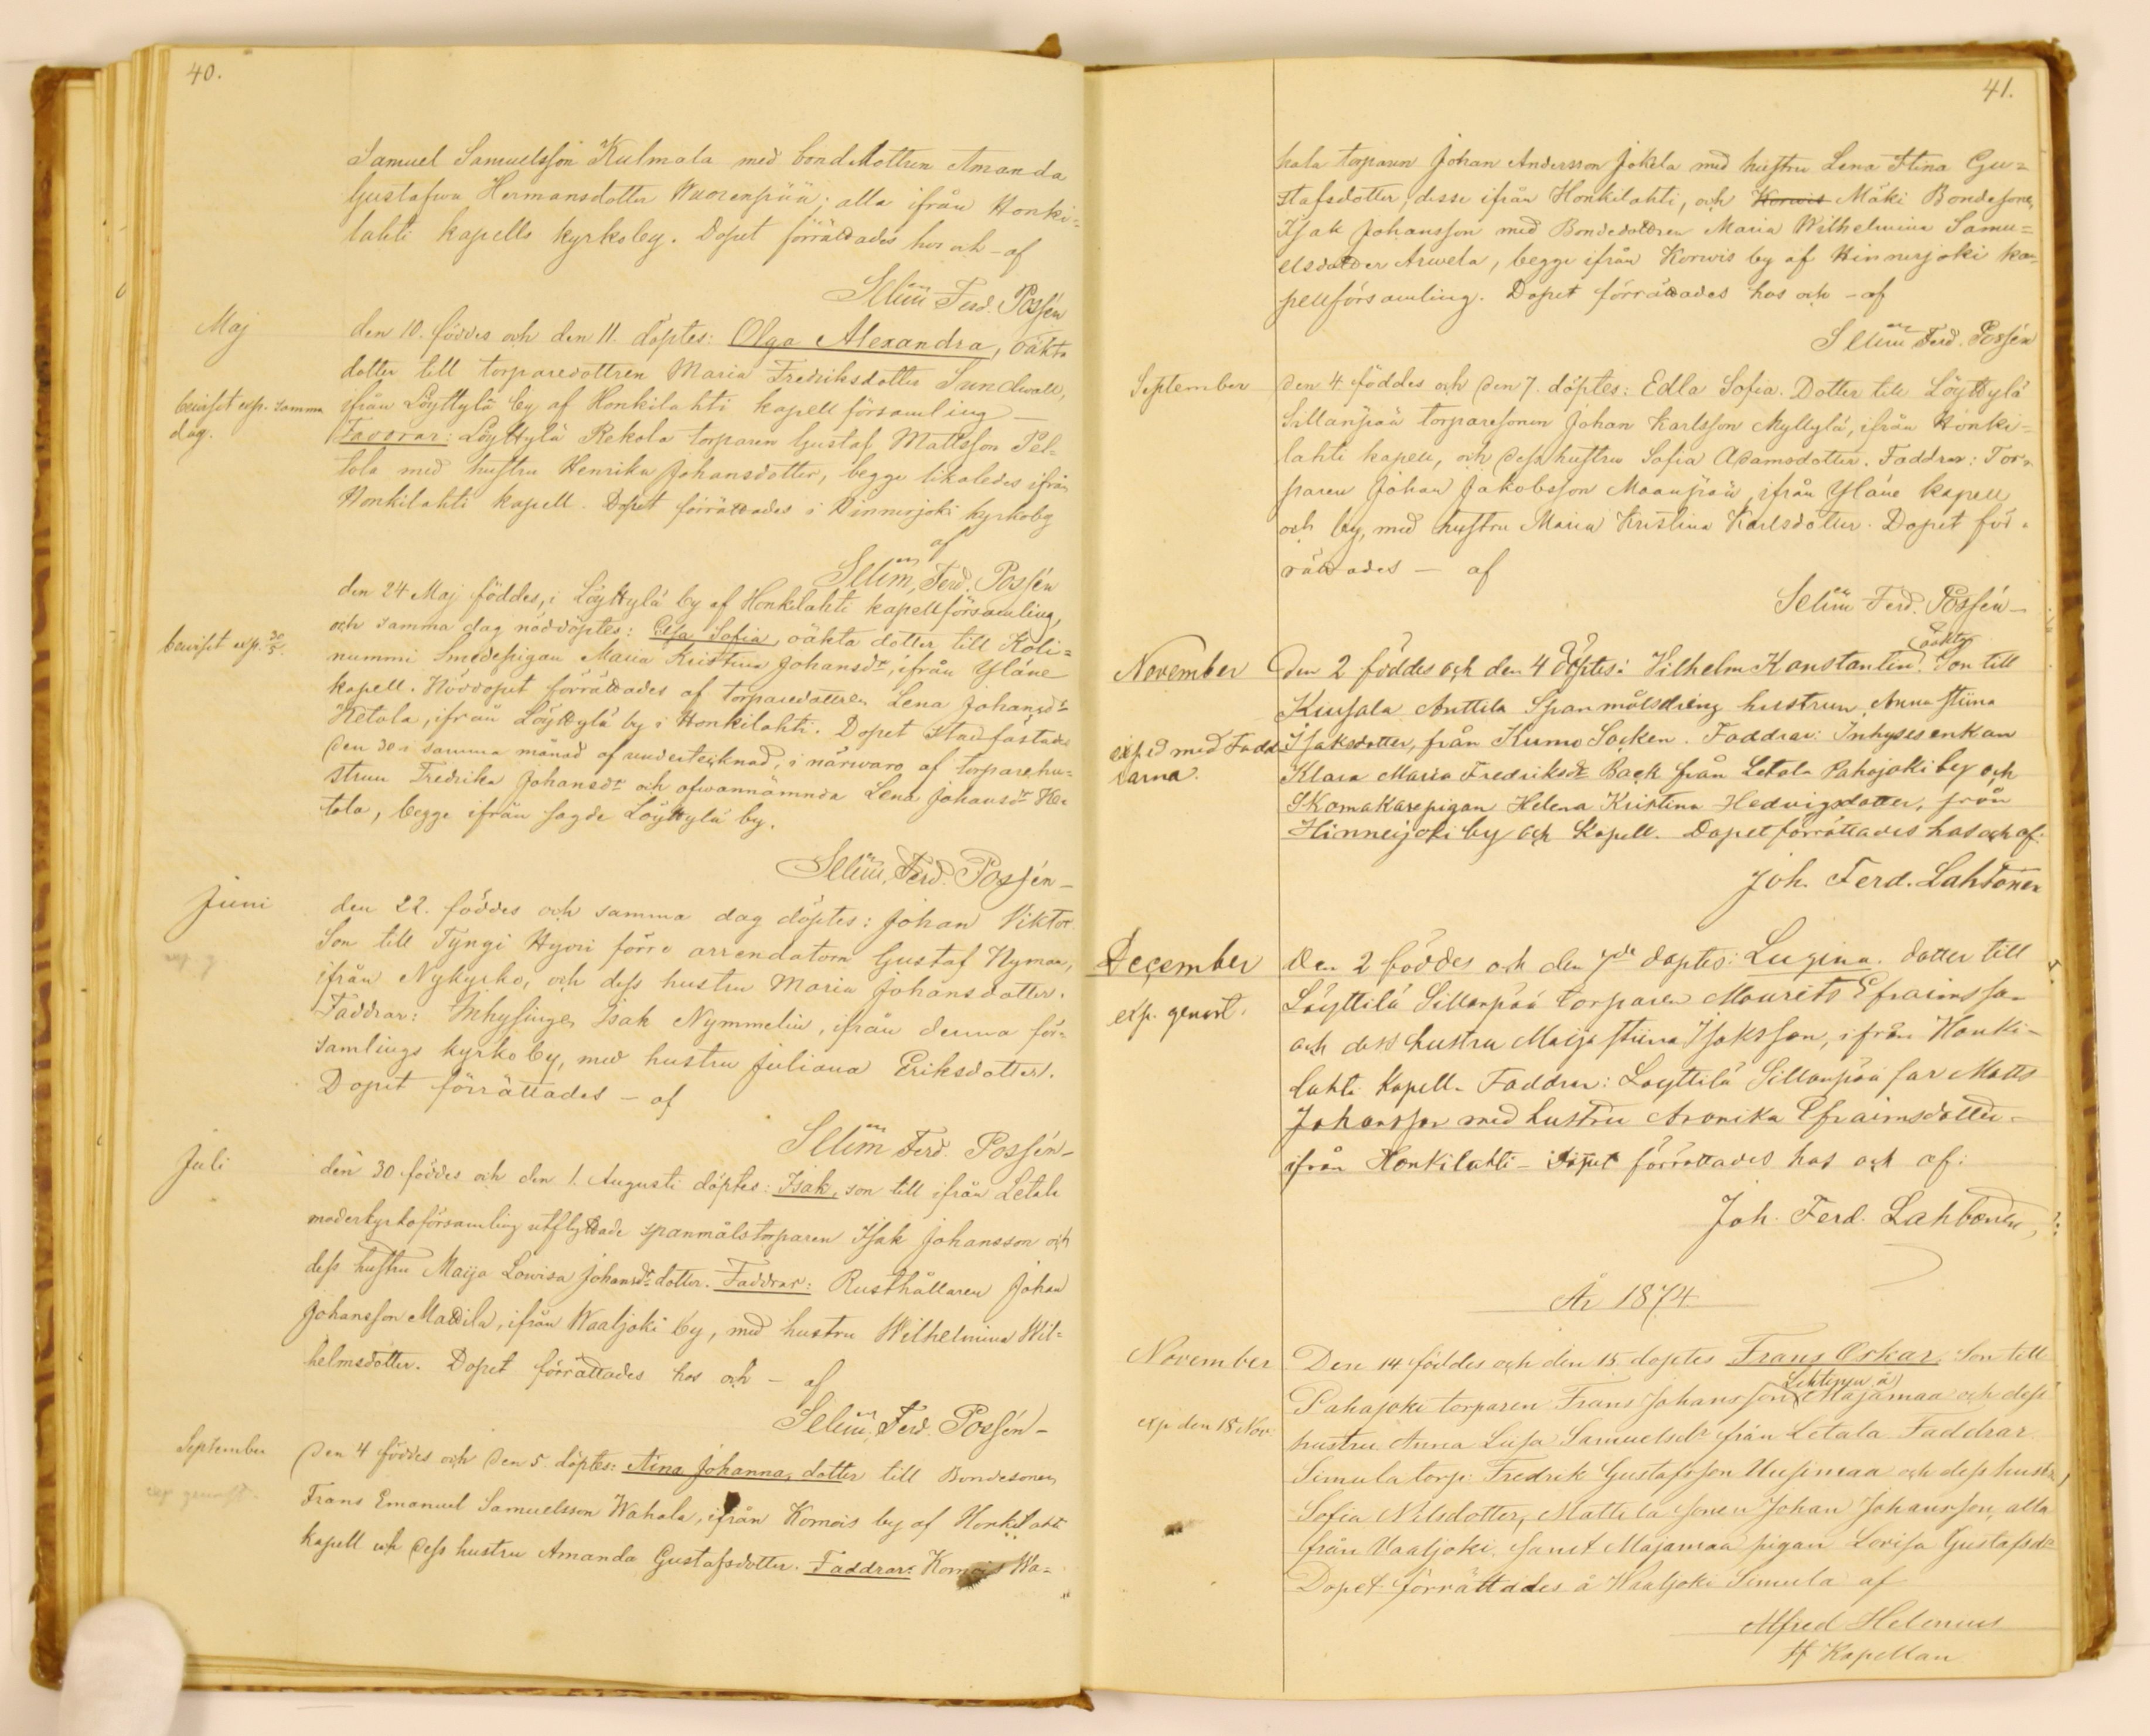 40.
Samuel Samuelsson Kulmala med bondedottren Amanda
Gustafwa Hermansdotter Wuorenpää; alla ifrån Honki=
lahti kapells kyrkoby. Dopet förrättades hos och - af
Selim Ferd. Possén
Maj
den 10. föddes och den 11. döptes: Olga Alexandra, oäkta
dotter till torparedottren Maria Fredriksdotter Sundwall,
beviset exp. samma
dag.
ifrån Löyttylä by af Honkilahti kapellförsamling —
Faddrar: Löyttylä Rekola torparen Gustaf Mattsson Pel=
tola med hustru Henrika Johansdotter, begge likaledes ifrån
Honkilahti kapell. Dopet förrättades i Hinnerjoki kyrkoby
af
Selim Ferd. Possén
den 24 Maj föddes, i Löyttylä by af Honkilahti kapellförsamling,
och samma dag nöddöptes: Elsa Sofia, oäkta dotter till Koli=
beviset exp. 30/5.
nummi Smedspigan Maria Kristina Johansdr, ifrån Yläne
kapell. Nöddopet förrättades af torparedottren Lena Johansdr
Ketola, ifrån Löyttylä by i Honkilahti. Dopet stadfästades
den 30 i samma månad af undertecknad, i närwaro af torparehu=
strun Fredrika Johansdr och ofwannämnda Lena Johansdr Ke=
tola, begge ifrån sagde Löyttylä by.
Selim Ferd. Possén —
Juni
den 22. föddes och samma dag döptes: Johan Viktor
Son till Tyngi Hyvi förre arrendatorn Gustaf Nyman,
ifrån Nykyrko, och dess hustru Maria Johansdotter.
Faddrar: Inhysingen Isak Nymmelin, ifrån denna för=
samlings kyrkoby, med hustru Juliana Eriksdotter.
Dopet förrättades - af
Selim Ferd. Possén —
Juli
den 30 föddes och den 1. Augusti döptes: Isak, son till ifrån Letala
moderkyrkoförsamling utflyttade spanmålstorparen Isak Johansson och
dess hustru Maija Lowisa Johansdr dotter. Faddrar: Rusthållaren Johan
Johansson Mattila, ifrån Waaljoki by, med hustru Wilhelmina Wil=
helmsdotter. Dopet förrättades hos och - af
Selim Ferd. Possén —
September
den 4 föddes och den 5 döptes: Aina Johanna, dotter till Bondesonen
exp genast.
Frans Emanuel Samuelsson Wahala, ifrån Korwois by af Honkilahti
kapell och dess hustru Amanda Gustafsdotter. Faddrar: Korwois Wa=
41.
hala torparen Johan Andersson Jokela med hustru Lena Stina Gu=
stafsdotter, desse ifrån Honkilahti, och Korwis Mäki Bondesonen
Isak Johansson med Bondedottren Maria Wilhelmina Samu=
elsdotter Arwela, begge ifrån Korwis by af Hinnerjoki ka=
pellförsamling. Dopet förrättades hos och - af
Selim Ferd. Possén
September
den 4 föddes och den 7. döptes: Edla Sofia. Dotter till Löyttylä
Sillanpää torparesonen Johan Karlsson Myllylä, ifrån Honki=
lahti kapell, och dess hustru Sofia Adamsdotter. Faddrar: Tor=
paren Johan Jakobsson Maanpää, ifrån Yläne kapell
och by, med hustru Maria Kristina Karlsdotter. Dopet för=
rättades — af
Selim Ferd. Possén —
oäkta
November
Den 2 föddes och den 4 döptes: Vilhelm Konstantin. Son till
Kiusala Anttila Spanmålsdräng hustrun Anna Stiina
exp.d med Fadd
rarna.
Isaksdotter, från Kumo Socken. Faddrar: Inhysesenkan
Klara Maria Fredriksdr Back från Letala Pahojoki by och
Skomakarepigan Helena Kristina Hedvigsdotter, från
Hinneijoki by och Kapell. Dopet förrättades hos och af:
Joh. Ferd. Lahtonen
December
Den 2 föddes och den 7de döptes: Lugina. dotter till
exp. genast.
Löyttilä Sillanpää torparen Maurits Efraimsson
och dess hustru Maija Stiina Isaksson, ifrån Honki-
lahti Kapell. Faddrar: Löyttilä Sillanpää far Matts
Johansson med hustru Aronika Efraimsdotter -
ifrån Honkilahti - Dopet förrättades hos och af:
Joh. Ferd. Lahtonen
År 1874
November
Den 14 föddes och den 15 döptes Frans Oskar. Son till
Lehtinen å
Pahajoki torparen Frans Johansson Majamaa och dess
exp den 18 Nov.
hustru Anna Lisa Samuelsdr från Letala. Faddrar
Simula torp. Fredrik Gustafsson Uusimaa och dess hustru
Sofia Nilsdotter, Mattila sonen Johan Johansson, alla
från Vaaljoki, samt Majamaa pigan Lovisa Gustafsdr
Dopet förrättades å Waaljoki Simula af
Alfred Helenius
tf Kapellan